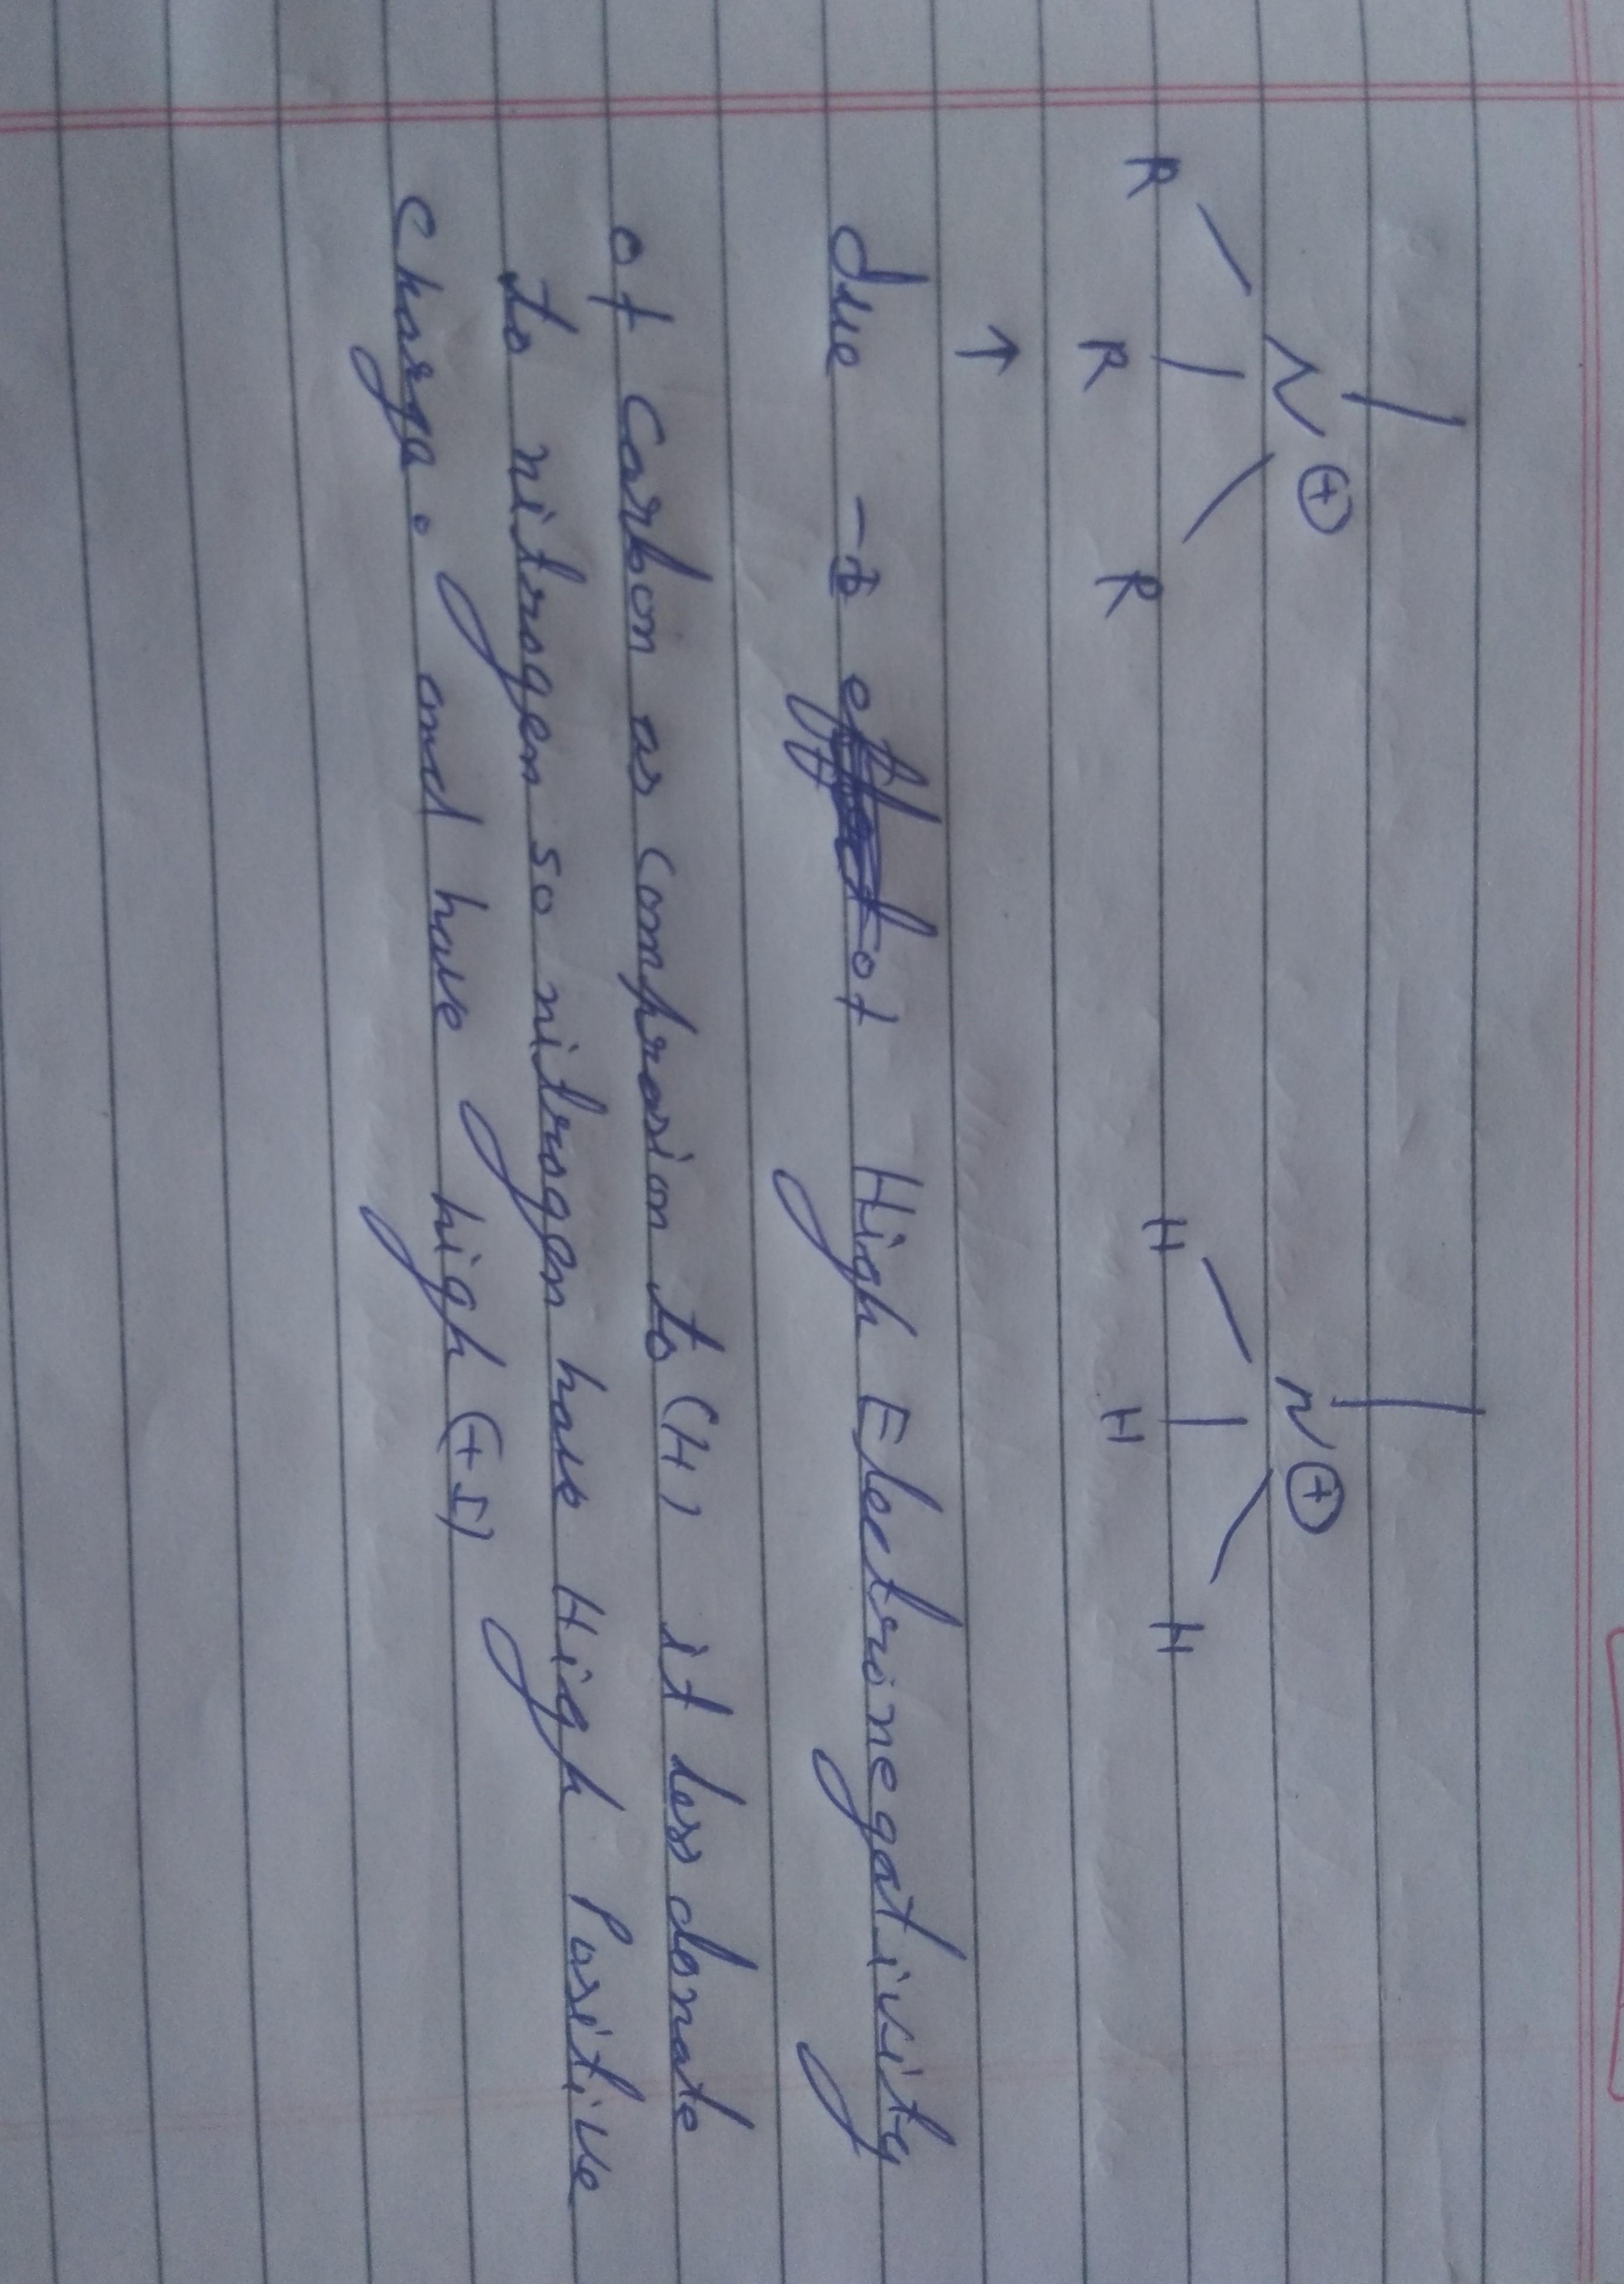 N ⊕ N ⊕
R R R H H H
→
due -I of High Electronegativity
of Carbon as Comprasion to (H) it less donate
to nitrogen so nitrogen have High Positive
Charge. and have high (+I)